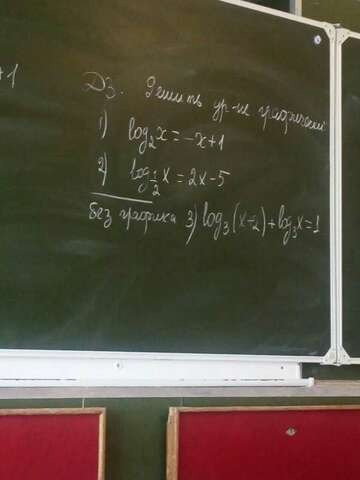 +1
ДЗ. Решить ур-ие графически
1) log₂x = -x+1
2) log_{1/2} x = 2x-5
без графика 3) log₃(x-2)+log₃x=1